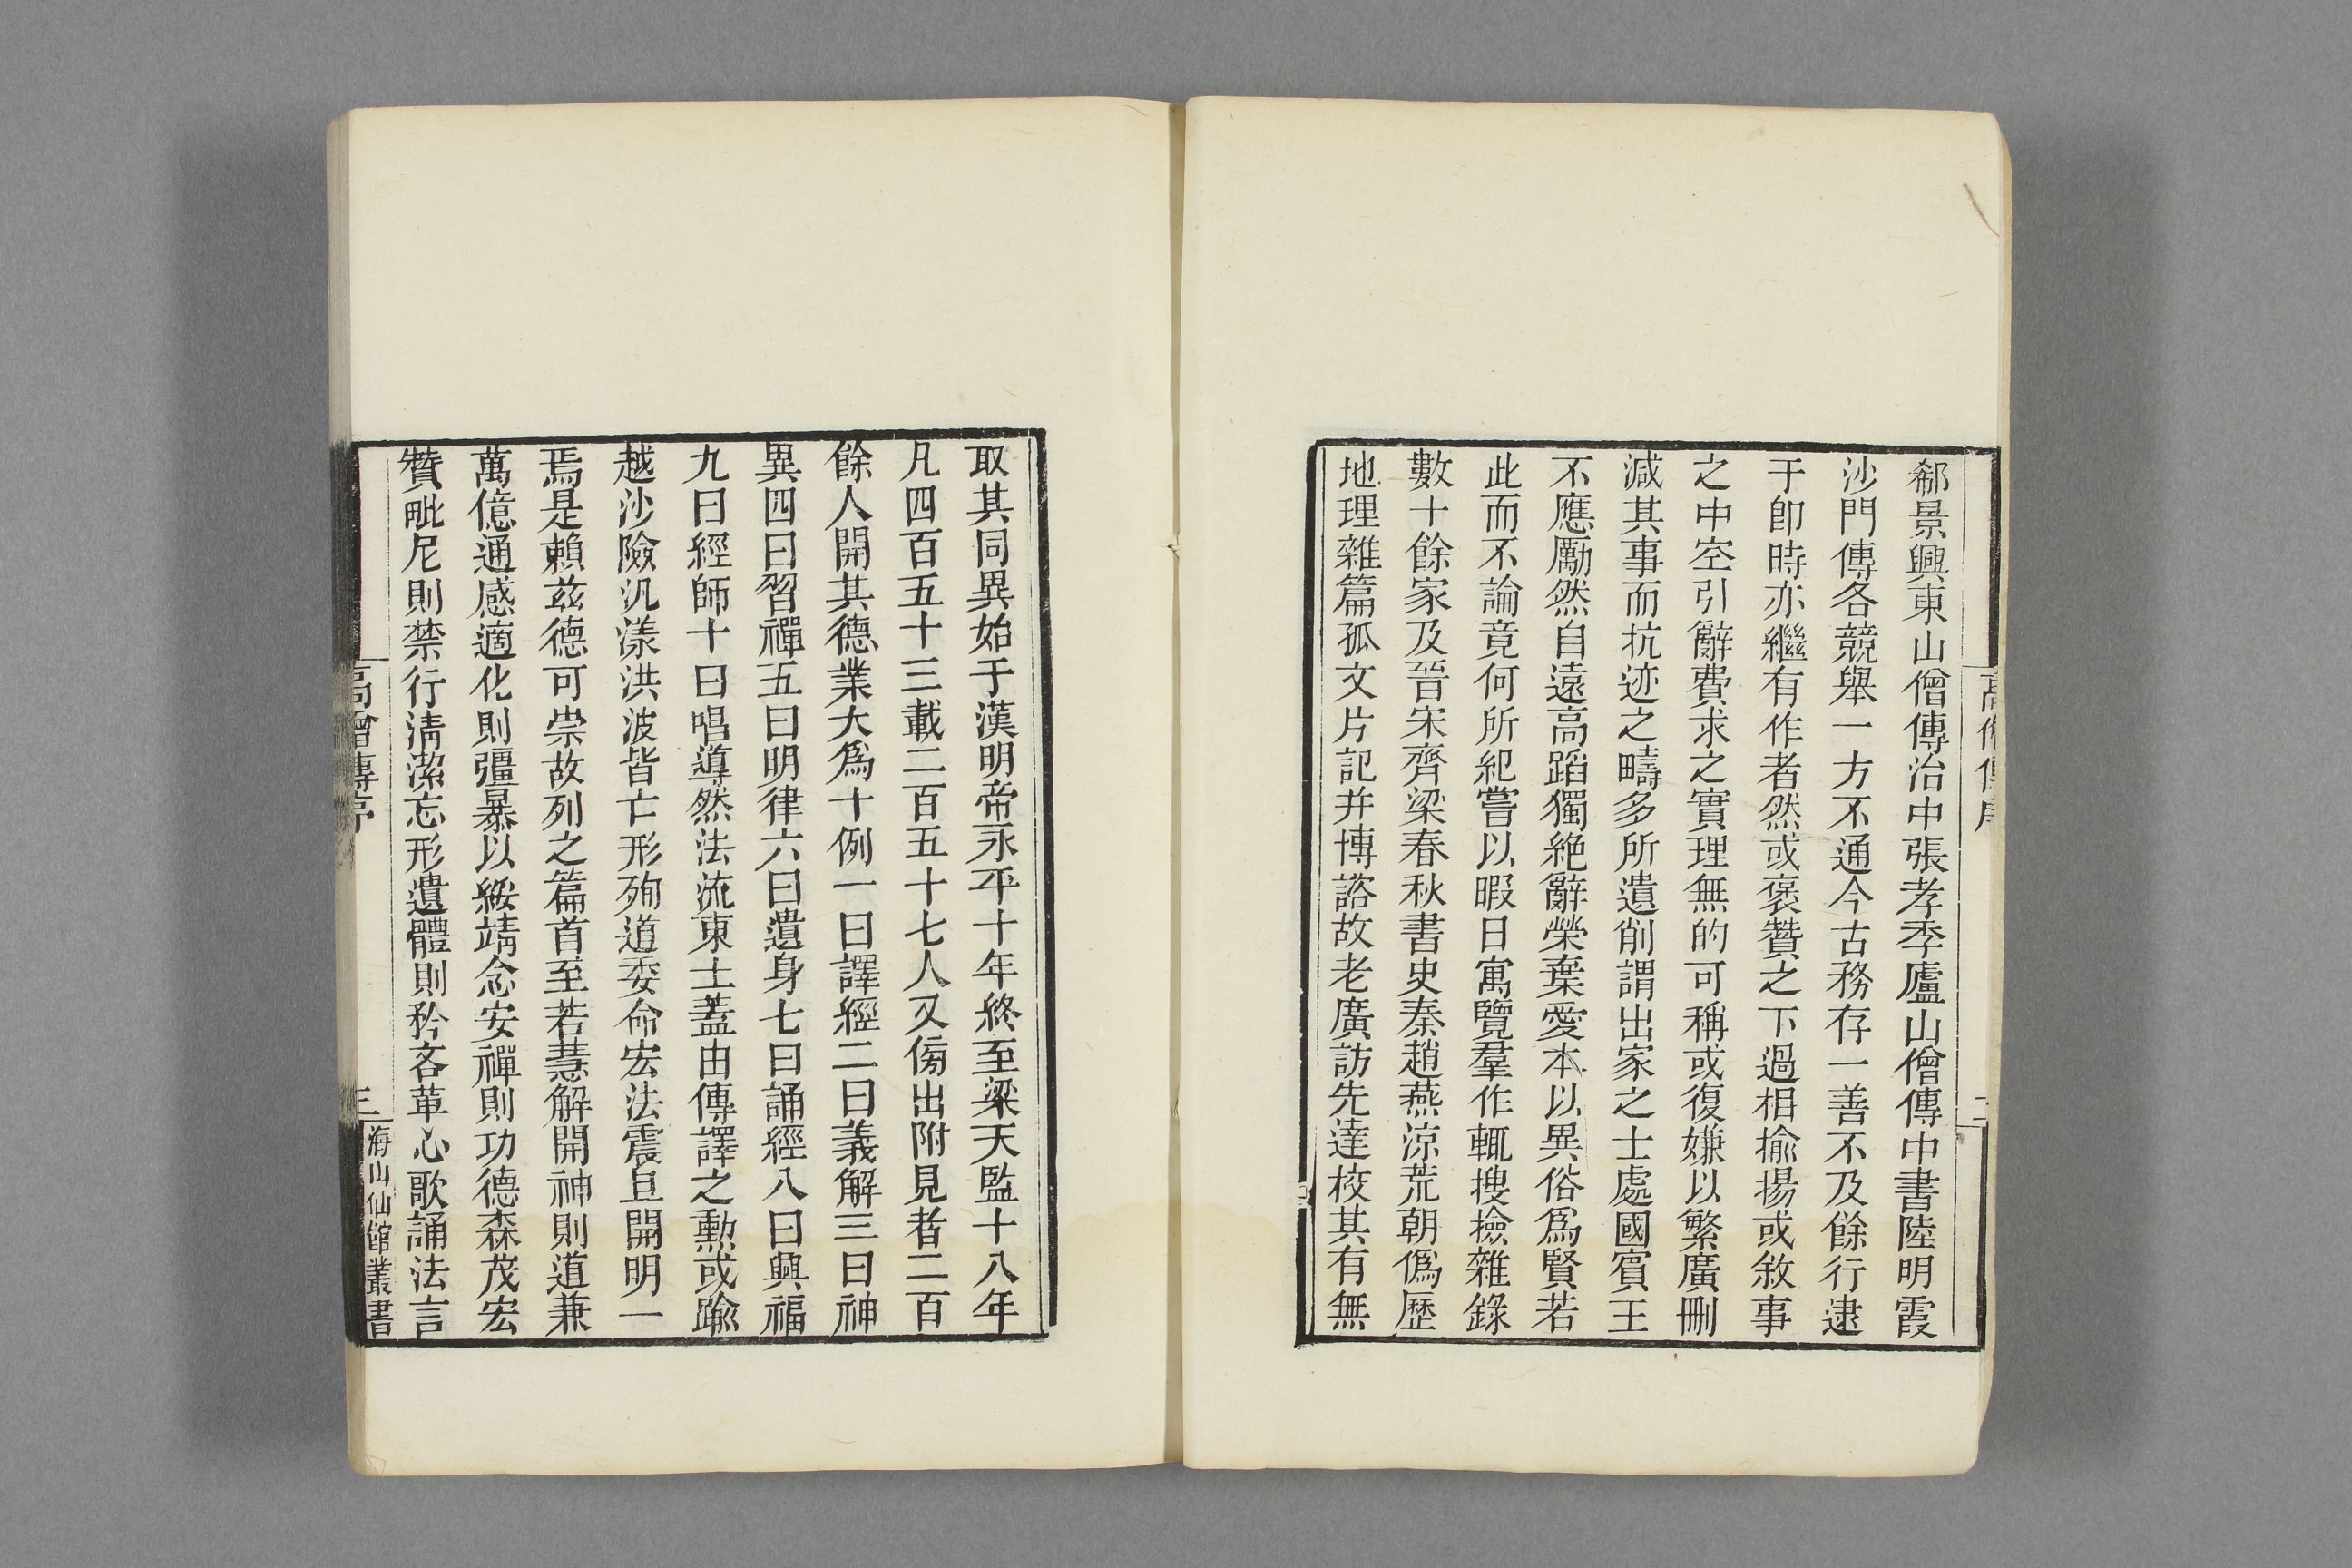 高僧傳序
二
郗景興東山僧傳治中張孝季廬山僧傳中書陸明霞
沙門傳各競舉一方不通今古務存一善不及餘行逮
于卽時亦繼有作者然或褒贊之下過相揄揚或敘事
之中空引辭費求之實理無的可稱或復嫌以繁廣刪
減其事而抗迹之疇多所遺削謂出家之士處國賓王
不應勵然自遠高蹈獨絶辭榮棄愛本以異俗爲賢若
此而不論竟何所紀嘗以暇日寓覽羣作輒搜撿雜錄
數十餘家及晉宋齊梁春秋書史秦趙燕涼荒朝僞歷
地理雜篇孤文片記并博諮故老廣訪先達校其有無
取其同異始于漢明帝永平十年終至梁天監十八年
凡四百五十三載二百五十七人又傍出附見者二百
餘人開其德業大爲十例一曰譯經二曰義解三曰神
異四曰習禪五曰明律六曰遺身七曰誦經八曰興福
九曰經師十曰唱導然法流東土蓋由傳譯之勲或踰
越沙險汎漾洪波皆亡形殉道委命宏法震旦開明一
焉是賴兹德可崇故列之篇首至若慧解開神則道兼
萬億通感適化則彊暴以綏靖念安禪則功德森茂宏
贊毗尼則禁行淸潔忘形遺體則矜吝革心歌誦法言
高僧傳序
三
海山仙館叢書